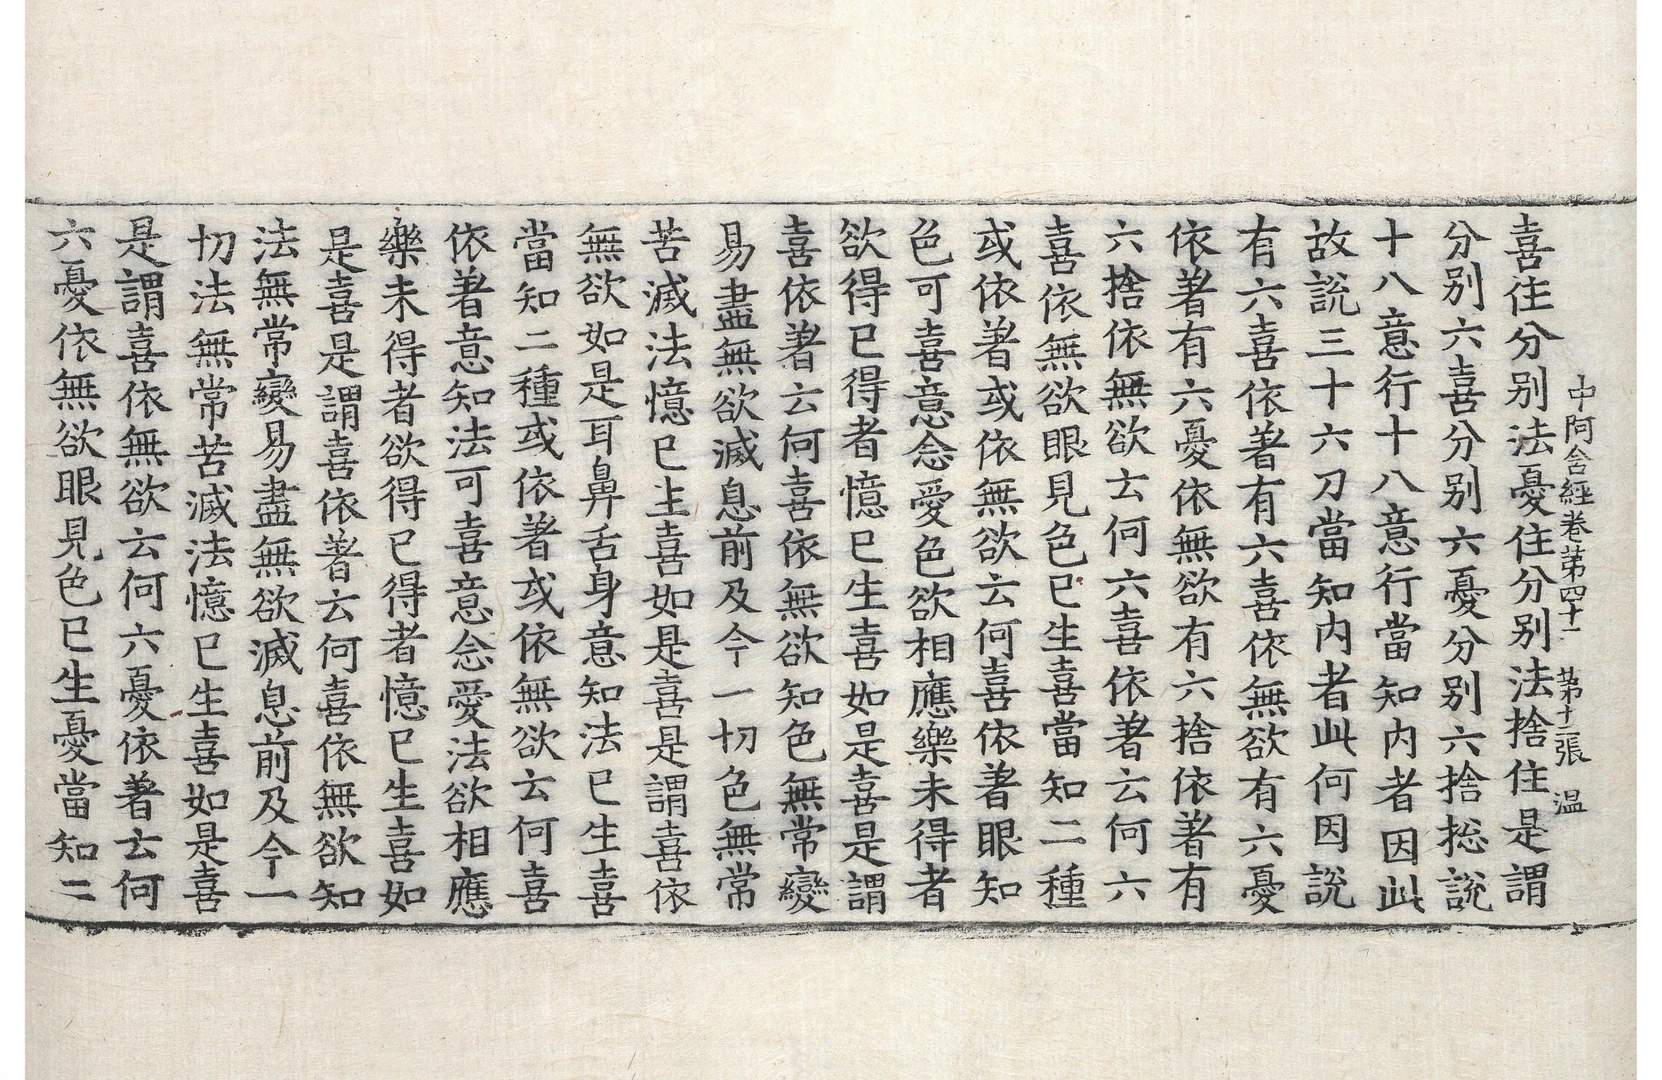 中阿含經卷第四十二 第十二張 温
喜住分别法憂住分别法捨住是謂
分别六喜分别六憂分别六捨捴說
十八意行十八意行當知内者因此
故説三十六刀當知内者此何因說
有六喜依著有六喜依無欲有六憂
依著有六憂依無欲有六捨依著有
六捨依無欲云何六喜依著云何六
喜依無欲眼見色已生喜當知二種
或依著或依無欲云何喜依著眼知
色可喜意念愛色欲相應樂未得者
欲得已得者憶已生喜如是喜是謂
喜依著云何喜依無欲知色無常變
易盡無欲滅息前及今一切色無常
苦滅法憶已生喜如是喜是謂喜依
無欲如是耳鼻舌身意知法已生喜
當知二種或依著或依無欲云何喜
依著意知法可喜意念愛法欲相應
樂未得者欲得已得者憶已生喜如
是喜是謂喜依著云何喜依無欲知
法無常變易盡無欲滅息前及今一
切法無常苦滅法憶已生喜如是喜
是謂喜依無欲云何六憂依著云何
六憂依無欲眼見色已生憂當知二